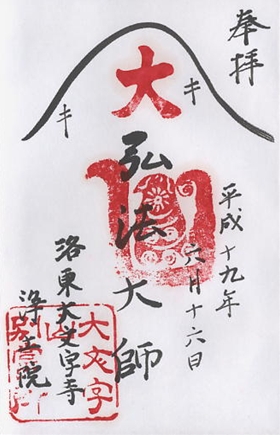 奉拝
平成十九年
六月十六日
大
キ
キ
弘法大師
洛東大文字寺
浄土院
大文字
山